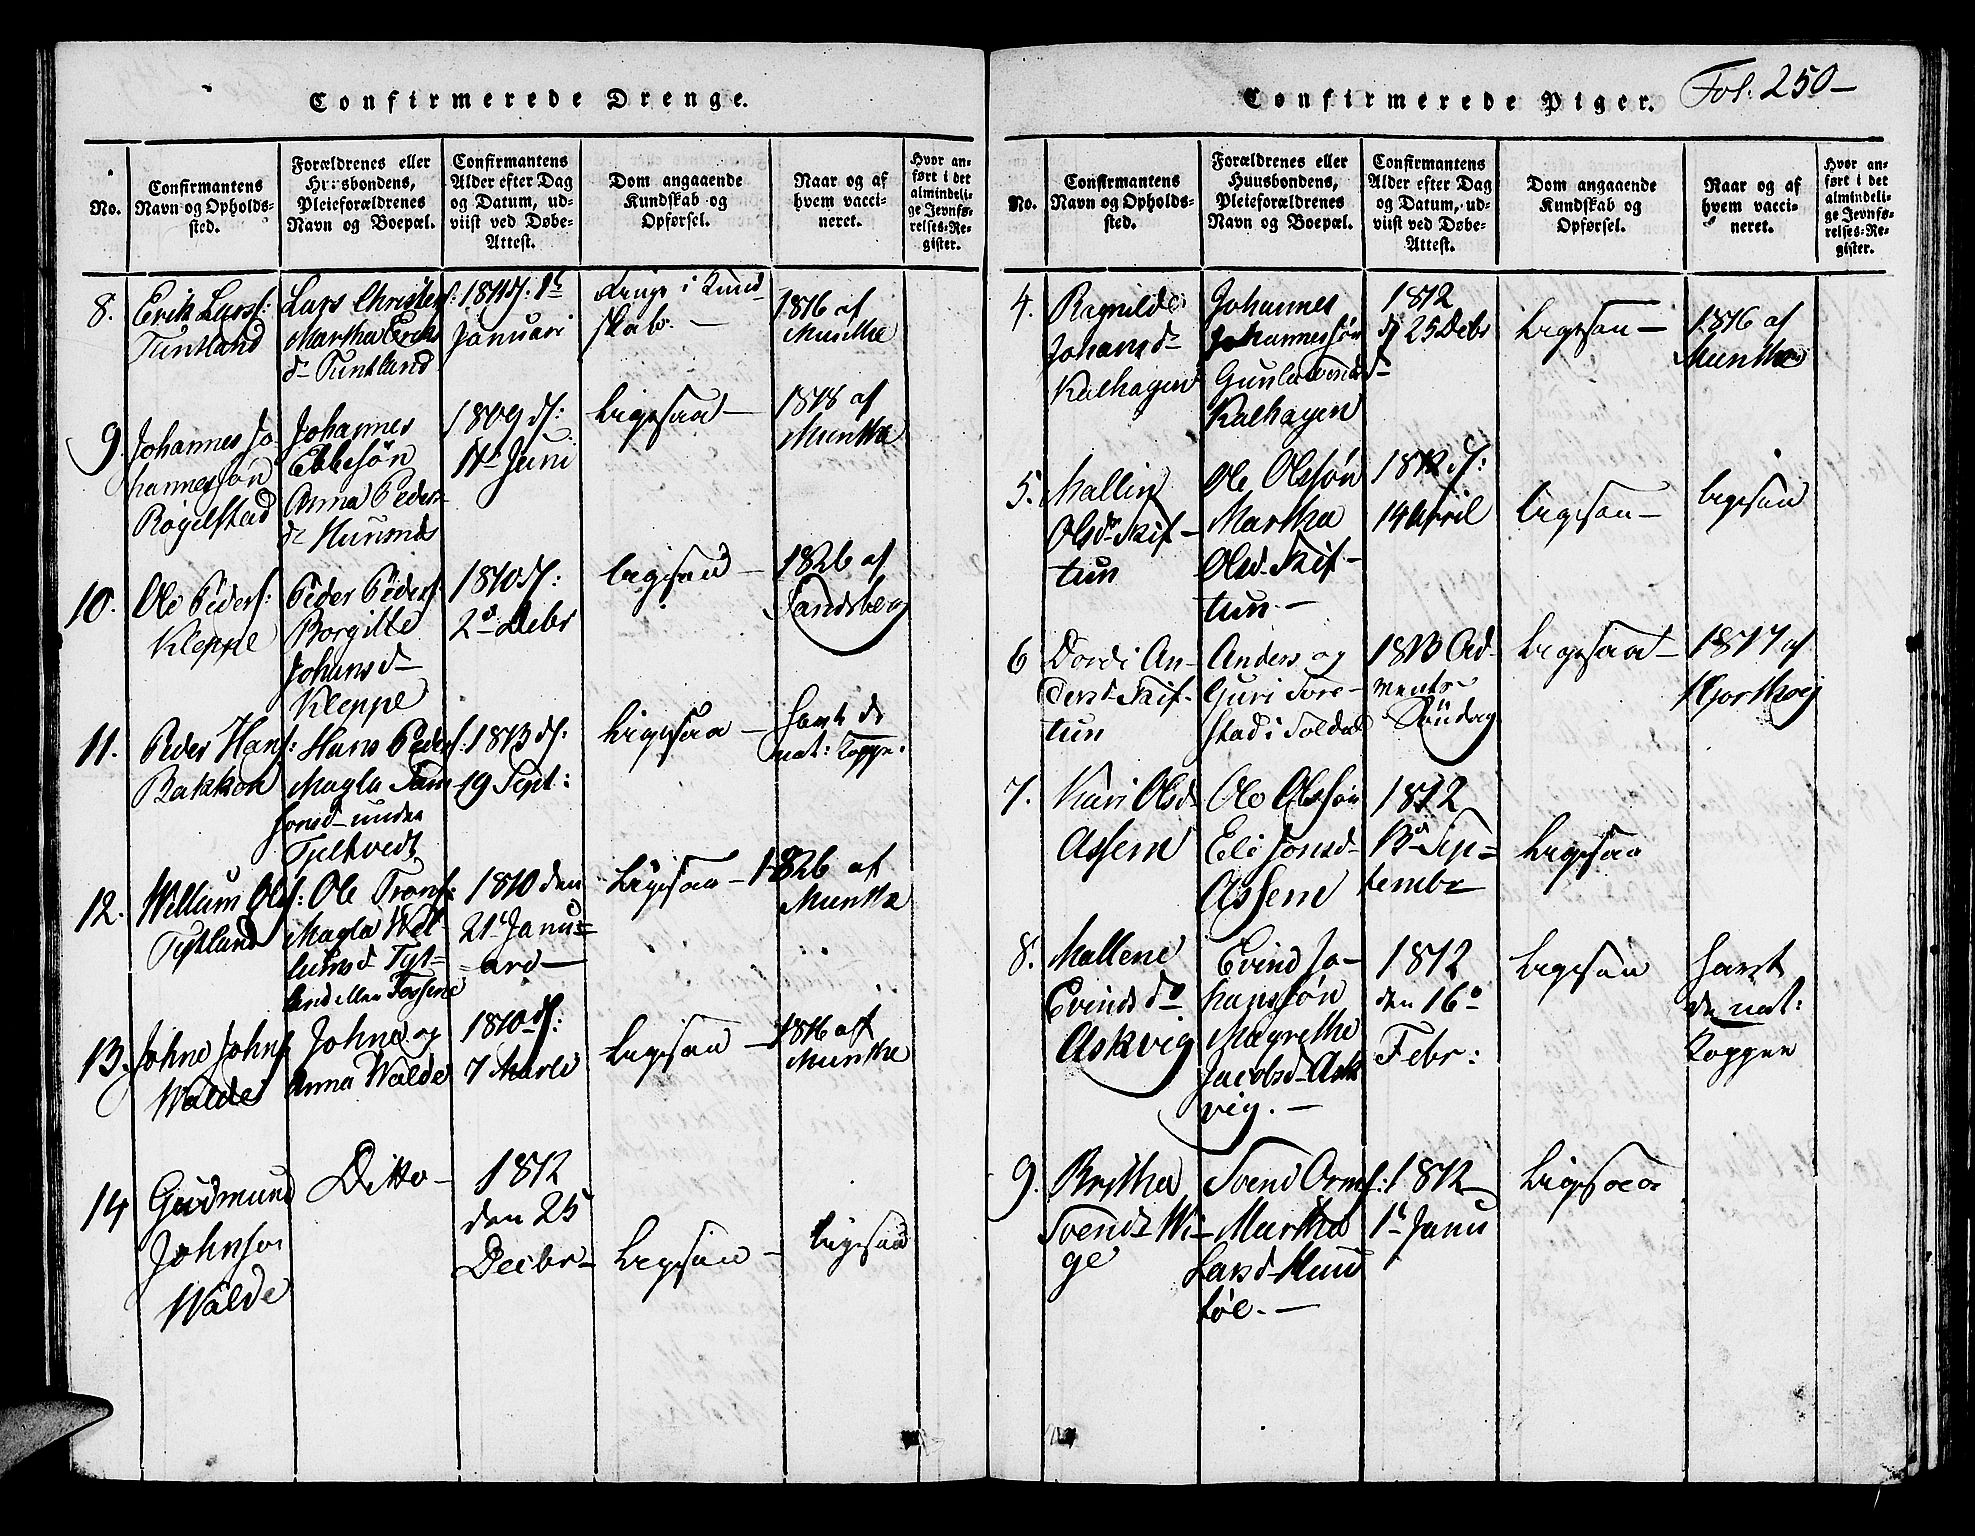 Confirmerede Drenge.
No.
Confirmantens
Navn og Opholds-
sted.
Forældrenes eller
Huusbondens,
Pleieforældrenes
Navn og Boepæl.
Confirmantens
Alder efter Dag
og Datum, ud-
viist ved Døbe-
Attest.
Dom angaaende
Kundskab og
Opførsel.
Naar og af
hvem vacci-
neret.
Hvor an-
ført i det
almindeli-
ge Jevnfø-
relses-Re-
gister.
8.
Erik Larss:
Tuntland
Lars Christens:
Martha Eriks
d- Tuntland
1811 d: 1t
Januari
Ringe i Kund-
skab. -
1816 af
Munthe
9.
Johannes Jo-
hannessøn
Røgelstad
Johannes
Ebbesøn
Anna Peders-
d-
1809 d:
11t Juni
Ligesaa -
1818 af
Munthe
10.
Ole Peders:
Kleppe
Peder Peders:
Borgitte
Johansd-
Kleppe
1810 d:
2d Debr
Ligesaa -
1826 af
Sandsberg
11.
Peder Hans:
Bakken
Hans Peders:
Magla
Jonsd- under
Tjeltvedt
1813 d:
19 Sept:
Ligesaa -
havt de
nat: Kopper
12.
Willum Ols:
Tystland
Ole Trons:
Magla Wil-
lumsd Tyt-
land eller Fossene
1810 den
21t Janu-
ari -
Ligesaa -
1826 af
Munthe
13.
Johne Johns:
Walde
Johne og
Anna Walde
1810 d:
7 Marti
Ligesaa -
1816 aff
Munthe
14
Gudmund
Johnsøn
Walde
Ditto -
1812
den 25
Decbr -
Ligesaa -
Ligesaa
Confirmerede Piger.
Fol: 250 -
No.
Confirmantens
Navn og Opholds-
sted.
Forældrenes eller
Huusbondens,
Pleieforældrenes
Navn og Boepæl.
Confirmantens
Alder efter Dag
og Datum, ud-
viist ved Døbe-
Attest.
Dom angaaende
Kundskab og
Opførsel.
Naar og af
hvem vacci-
neret.
Hvor an-
ført i det
almindeli-
ge Jevnfø-
relses-Re-
gister.
4.
Ragnilde
Johansd-
Kalhagen
Johannes
Johannessøn
Kalhagen
1812
d 25 Debr
Ligesaa -
1816 af
Munthe
5.
Mallin
Olsd- Skif-
tun
Ole Olssøn
Martha
Olsd- Skif-
tun. -
1812 d:
14 April
Ligesaa -
ligesaa
6
Dordi An-
dersd- Skif-
tun
Anders og
Guri Tore-
stad i Soldal
1813 Ad-
vents-
Søndag
Ligesaa -
1817 af
Hjorthøi
7.
Kari Olsd-
Assem
Ole Olssøn
Eli Jonsd-
Assem
1812
13d Sep-
tembr
Ligesaa
8.
Mallene
Evindsd-
Askvig
Evind Jo-
hanssøn
Magrethe
Jacobsd- Ask
vig. -
1812
den 16
Febr:
Ligesaa
havt
de nat:
Kopper
9.
Brytha
Svends- Wi-
ge
Svend Orms:
Martha
Larsd-
1812
1t Janu
Ligesaa